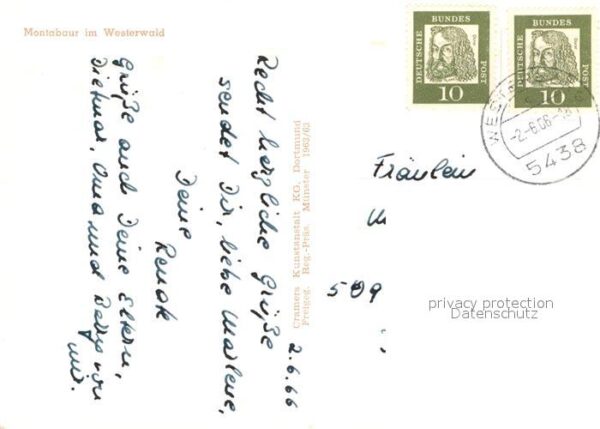 Montabaur im Westerwald
DEUTSCHE BUNDES POST
10
DEUTSCHE BUNDES POST
10
-2.-6.66
5438
Recht herzliche Grüße
sendet Dir, liebe Marlene,
Deine
Renate
Grüße auch Deine Eltern,
Dietmar, Oma und
mir.
2.6.66
Cramers Kunstanstalt KG. Dortmund
Freigeg. Reg.-Präs. Münster 1963/63
Fräulein
509
privacy protection
Datenschutz